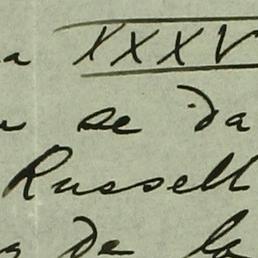 a XXXV
se da
Russell
de la